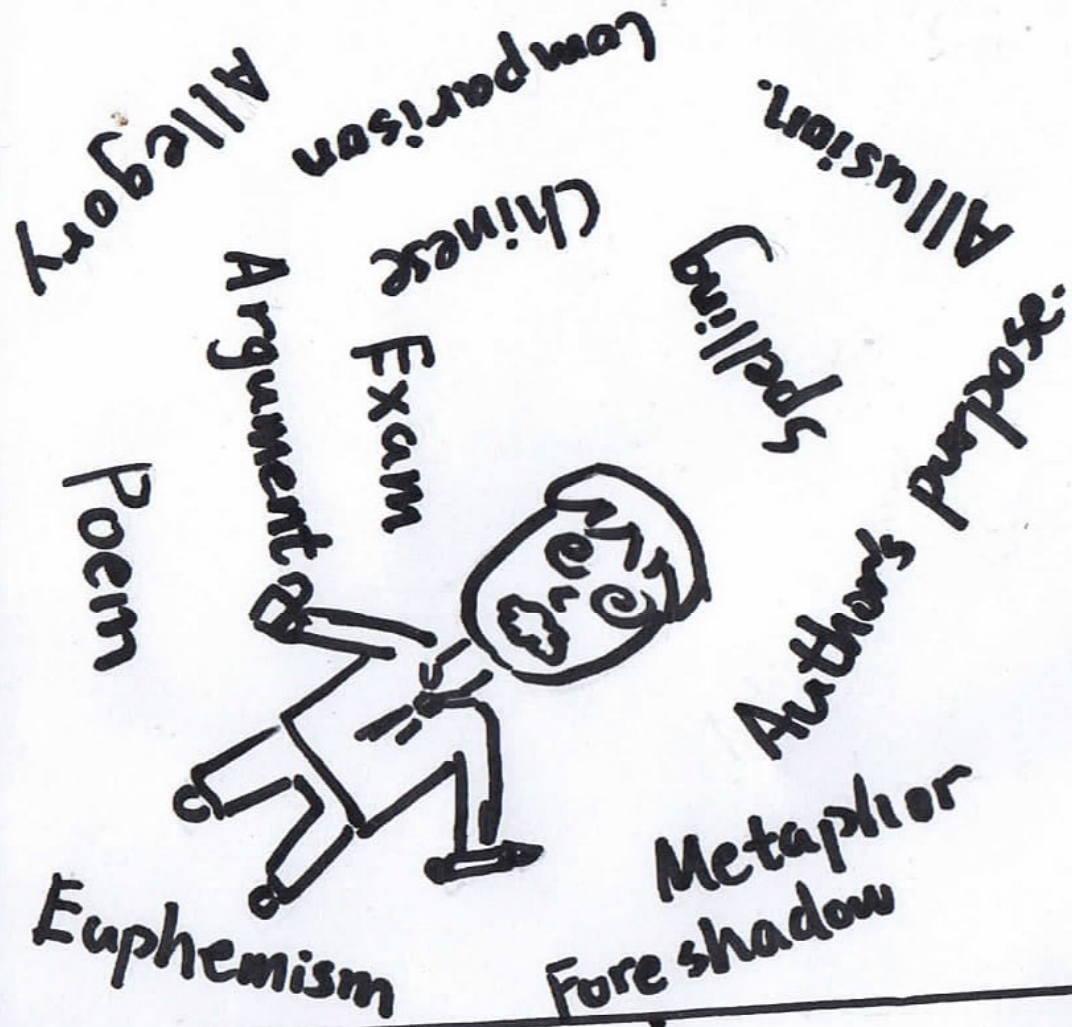 Allegory
comparison
Allusion.
Chinese
Spelling
Argument
Exam
Author's purpose.
Poem
Metaphor
Foreshadow
Euphemism